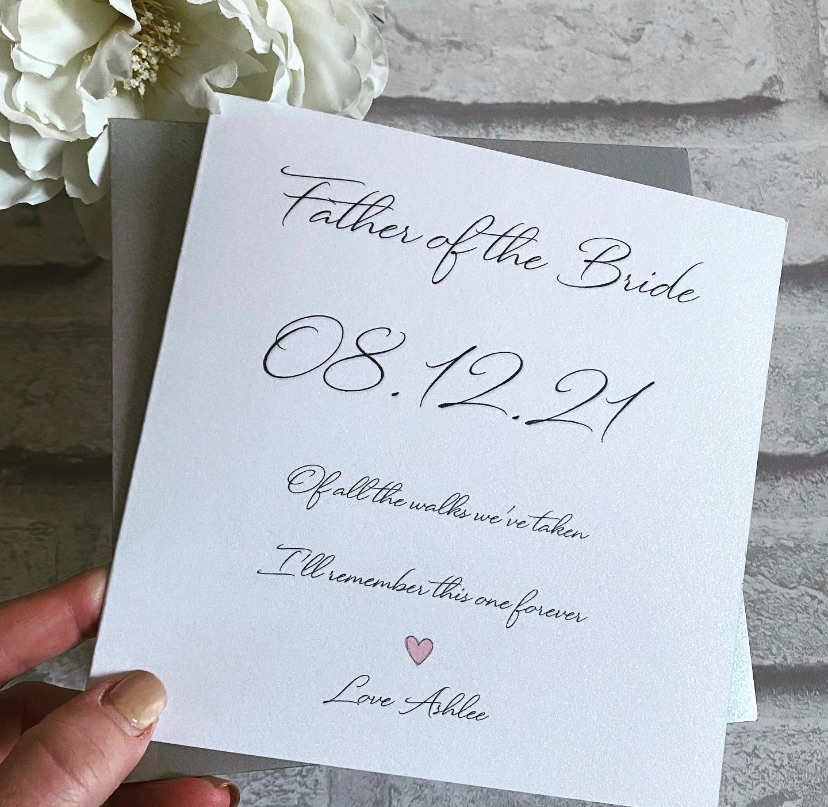 Father of the Bride
08.12.21
Of all the walks we've taken
I'll remember this one forever
Love Ashlee